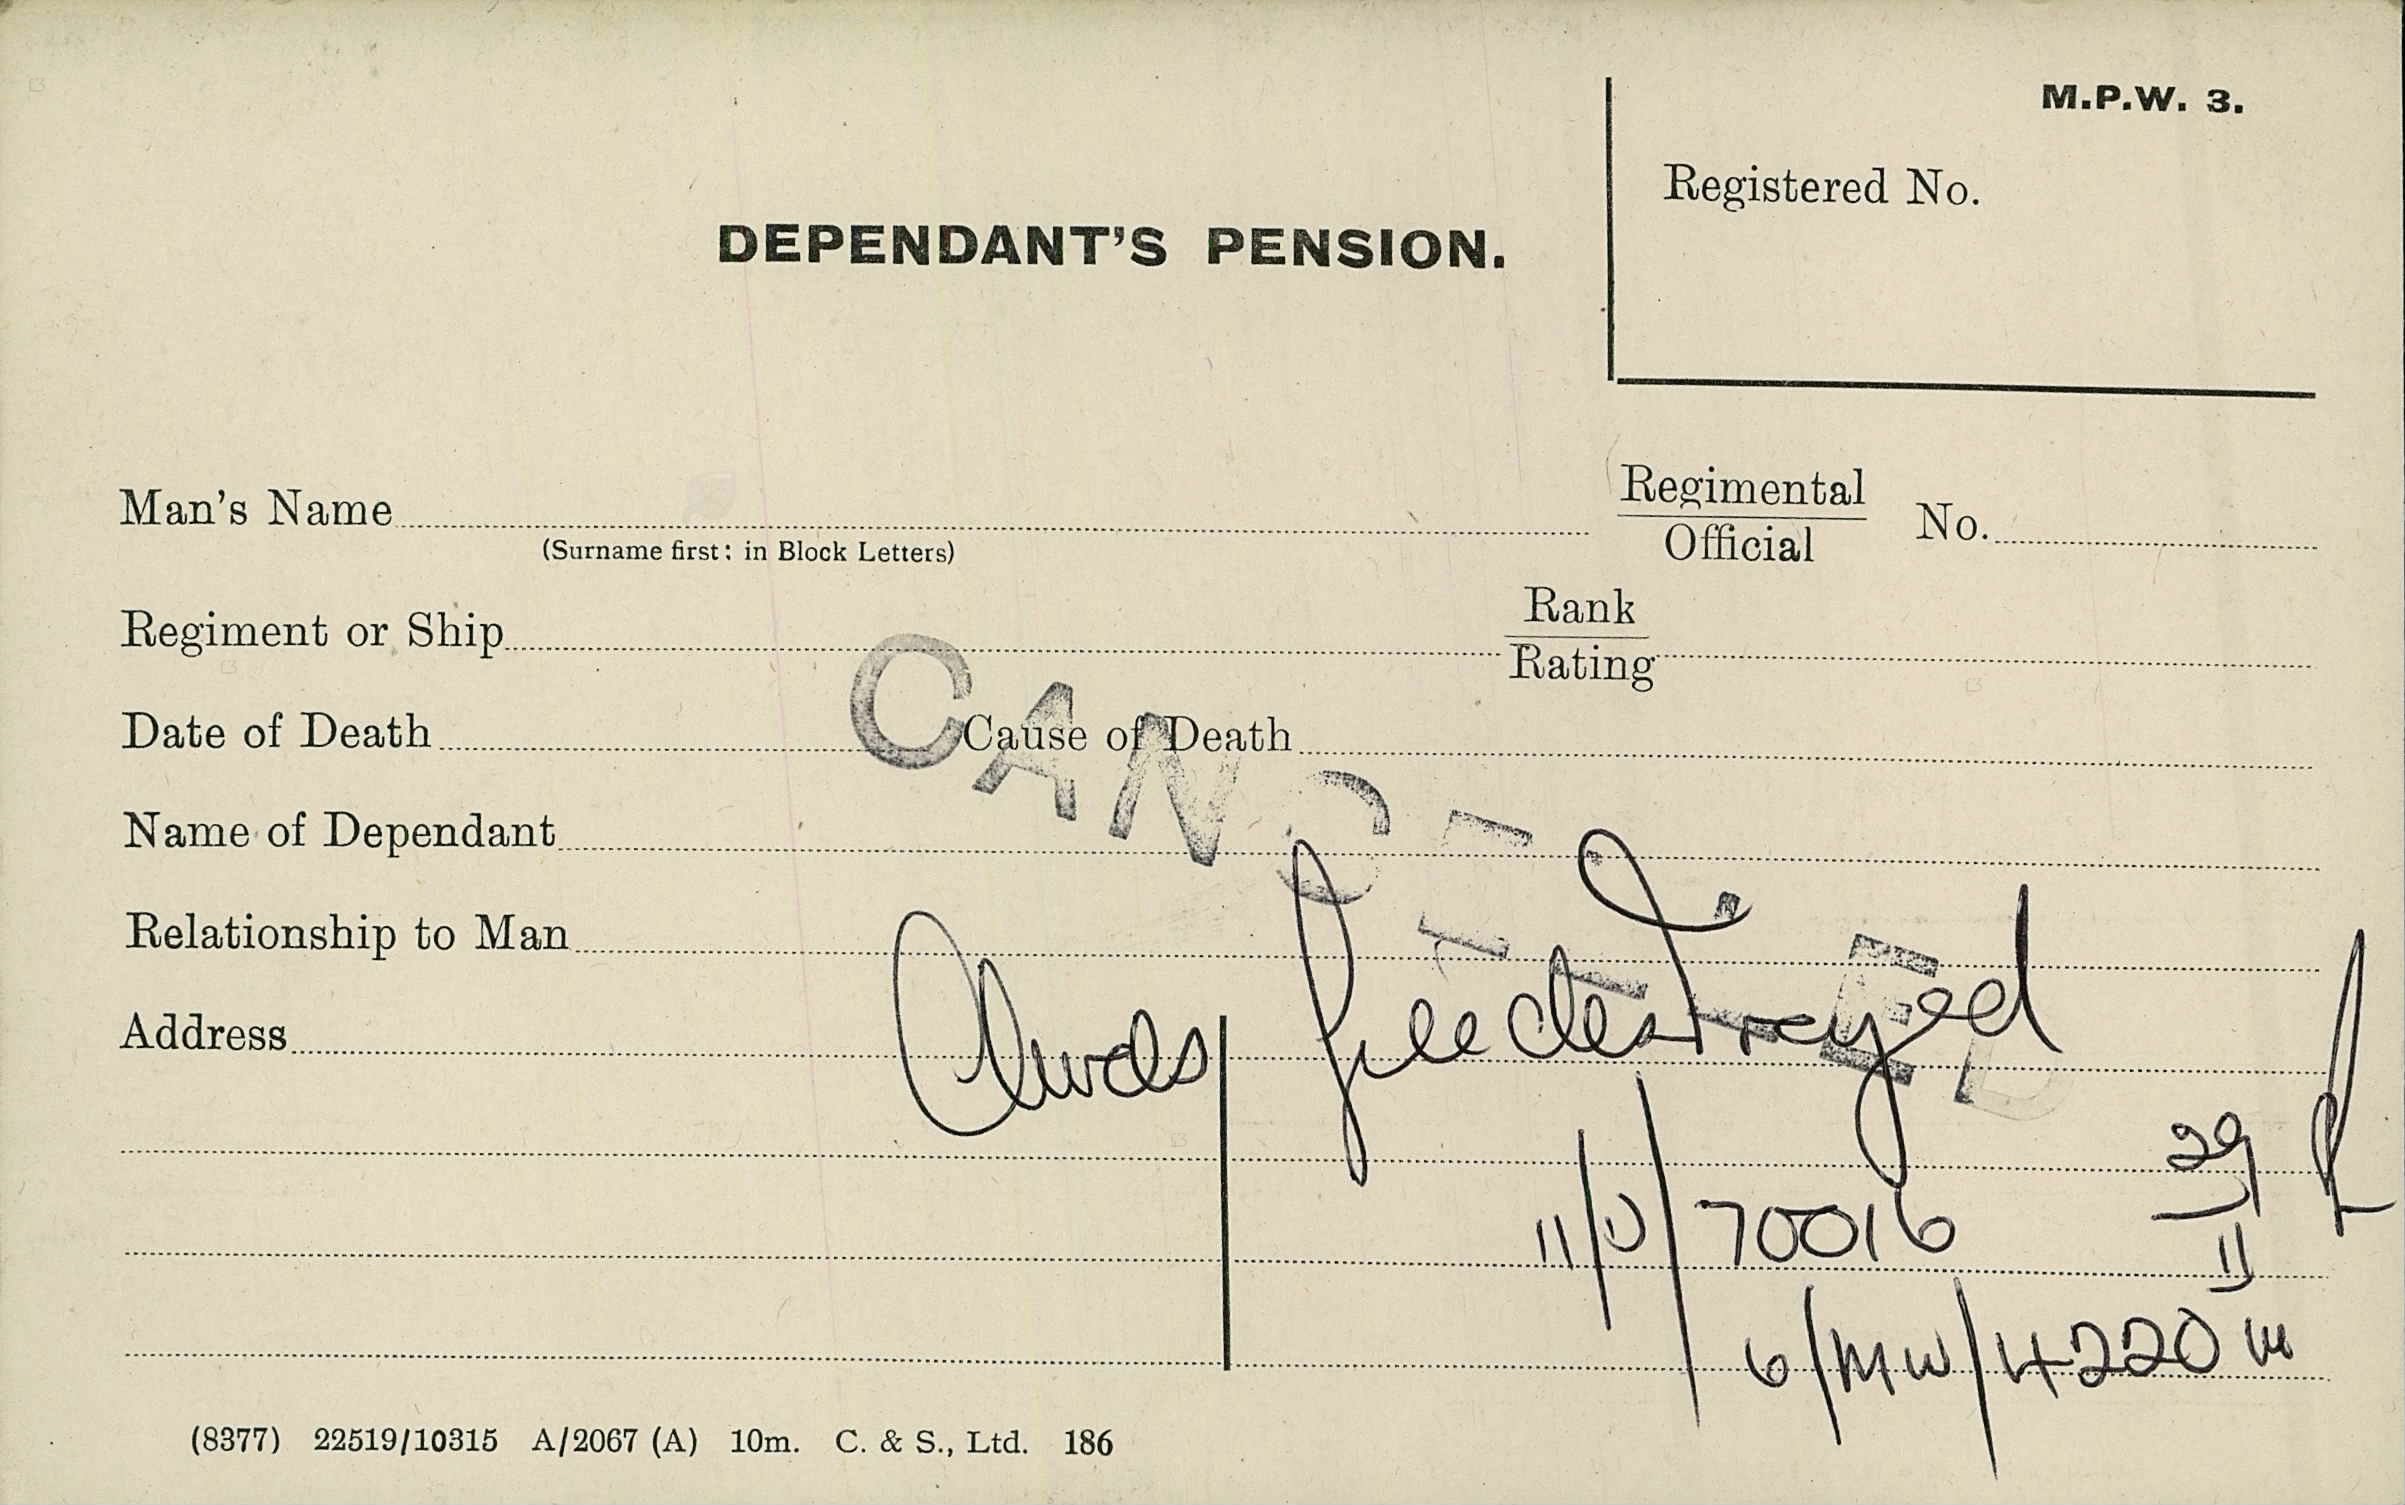 M.P.W. 3.
Registered No.
DEPENDANT'S PENSION.
Man's Name Regimental No.
Official
(Surname first: in Block Letters)
Rank
Regiment or Ship
Rating
CANCELLED
Date of Death Cause of Death
Name of Dependant
Relationship to Man
file destroyed
Address
29
11/D/70016
II
6/MW/4220
(8377) 22519/10315 A/2067 (A) 10m. C. & S., Ltd. 186